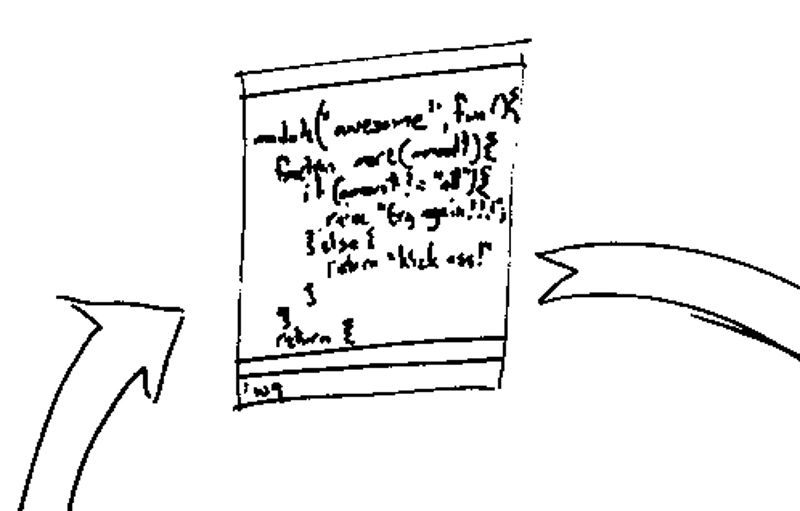 module("awesome", fun(){
function work(amount){
if (amount != "all"){
return "try again!!!";
} else {
return "kick ass!"
}
}
return {
:wq